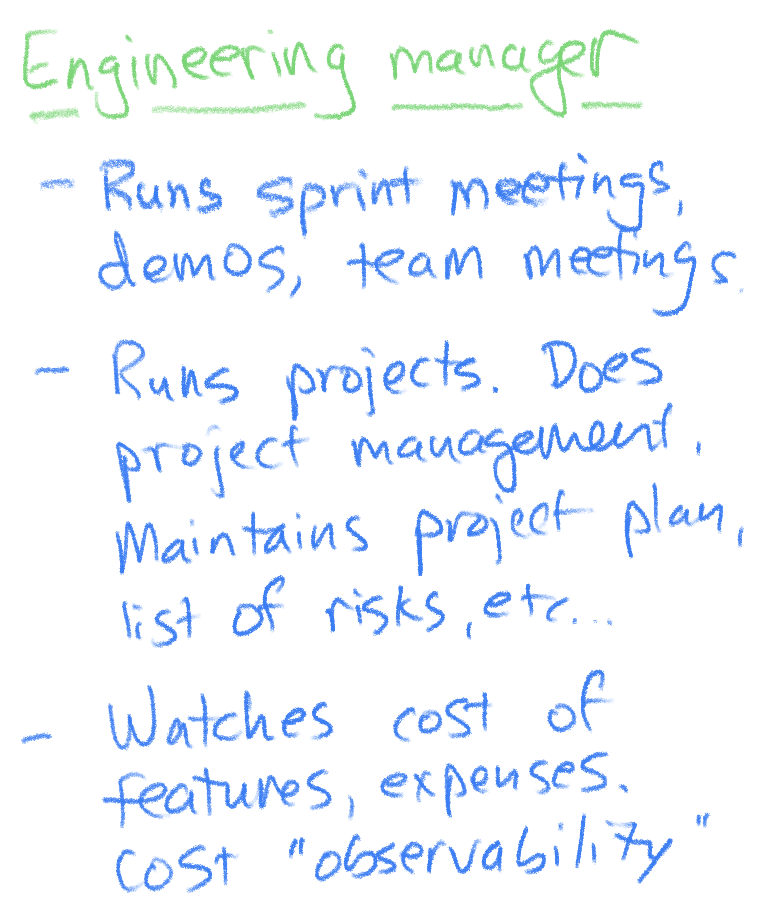 Engineering manager
- Runs sprint meetings,
demos, team meetings.
- Runs projects. Does
project management.
Maintains project plan,
list of risks, etc...
- Watches cost of
features, expenses.
cost "observability"